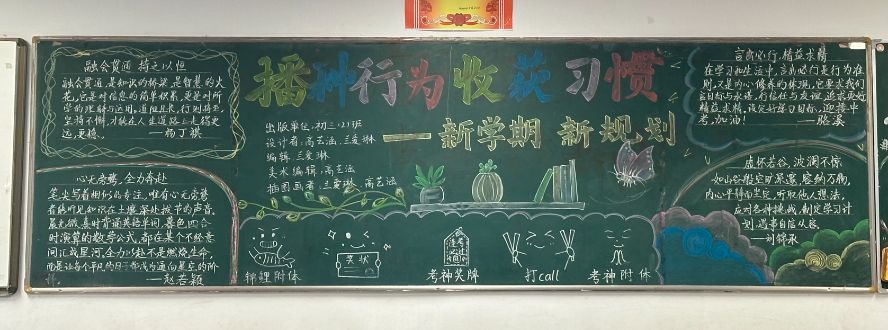 融会贯通 持之以恒
融会贯通,是知识的桥梁,是智慧的火
花,它是对信息的简单积累,更是对所
学的理解与运用,道阻且长,行则将至,
坚持不懈,才能在人生道路上走得更
远,更稳。
——杨丁祺
心无旁骛,全力奔赴
笔尖写着相似的专注,唯有心无旁骛
者能听见知识在土壤深处拔节的声音。
晨光微熹时背诵英语单词,暮色四合
时演算的数学公式,都在某个不经意
间汇成星河,全力以赴不是燃烧生命,
而是让每个平凡的日子都成为通向星空的阶
梯。
——赵若颖
播种行为 收获习惯
——新学期 新规划
出版单位:初三(2)班
设计者:高艺涵、兰爱琳
编辑:兰爱琳
美术编辑:高艺涵
插图画者:兰爱琳、高艺涵
锦鲤附体
奖状
考神奖牌
打call
考神附体
言出必行,精益求精
在学习和生活中,言出必行是行为准
则,又是内心修养的体现,它要求我们
精益求精,
考,加油!
——骆溪
虚怀若谷,波澜不惊
如山谷般空旷深邃,容纳万物,
内心平静而坚定,听取他人想法,
应对各种挑战,制定学习计
划,遇事自信从容。
——刘锦承